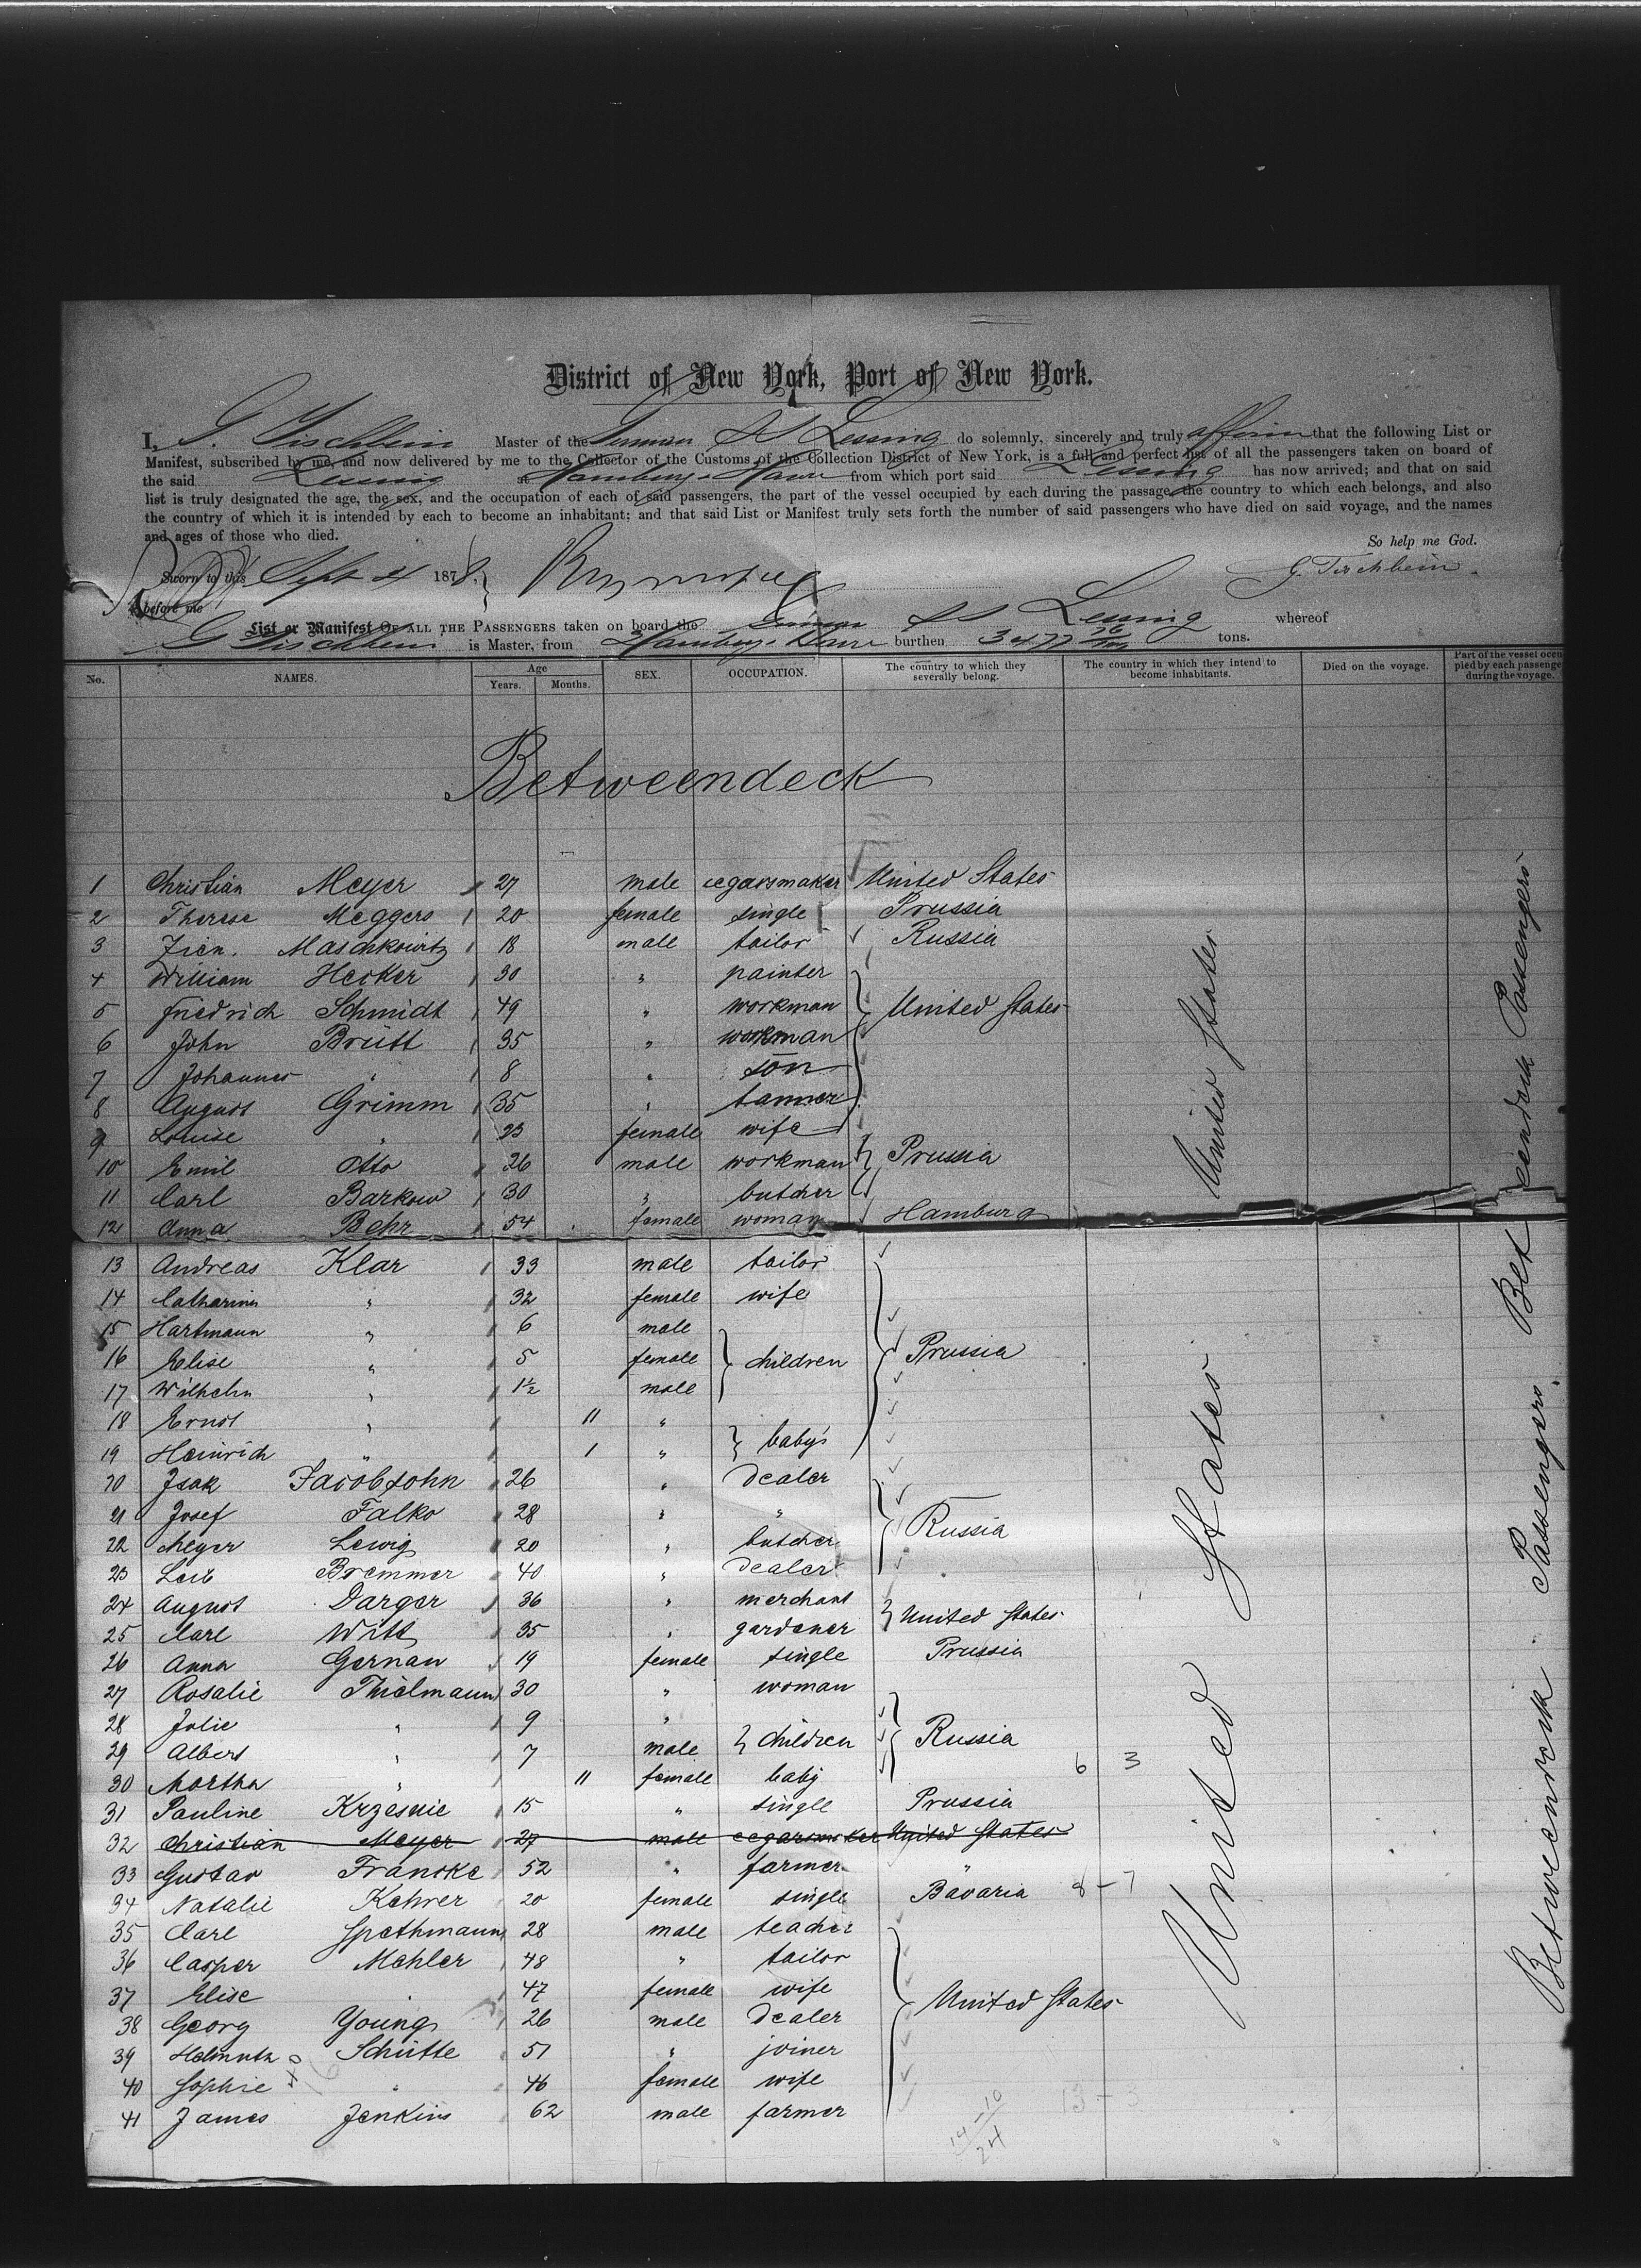 District of New York, Port of New York.
I, G. Tischbein Master of the German SS Lessing do solemnly, sincerely and truly affirm that the following List or
Manifest, subscribed by me, and now delivered by me to the Collector of the Customs of the Collection District of New York, is a full and perfect list of all the passengers taken on board of
the said Lessing at Hamburg & Havre from which port said Lessing has now arrived; and that on said
list is truly designated the age, the sex, and the occupation of each of said passengers, the part of the vessel occupied by each during the passage, the country to which each belongs, and also
the country of which it is intended by each to become an inhabitant; and that said List or Manifest truly sets forth the number of said passengers who have died on said voyage, and the names
and ages of those who died.
So help me God.
Sworn to this Sept 4 1878. G. Tischbein
before me
List or Manifest OF ALL THE PASSENGERS taken on board the German SS Lessing whereof
G Tischbein is Master, from Hamburg & Havre burthen 3477 tons.
No. NAMES. Age Years. Months. SEX. OCCUPATION. The country to which they severally belong. The country in which they intend to become inhabitants. Died on the voyage. Part of the vessel occupied by each passenger during the voyage.
Betweendeck
1 Christian Meyer 27 male cegarsmaker United States
2 Therese Meggers 20 female single Prussia
3 Maschkowitz 18 male tailor Russia
4 William Hecker 30 " painter
5 Friedrich Schmidt 49 " workman United States
6 John Brütt 35 " workman
7 Johannes " 8 " son
8 August Grimm 35 " tanner
9 Louise " 23 female wife
10 Emil Otto 26 male workman Prussia
11 Carl Barkow 30 " butcher
12 Anna Behr 54 female woman Hamburg
13 Andreas Klar 33 male tailor
14 Catharina " 32 female wife
15 Hartmann " 6 male
16 Elise " 5 female children Prussia
17 Wilhelm " 1½ male
18 Ernst " 11 "
19 Heinrich " 1 " baby's
20 Isak Jacobsohn 26 " dealer
21 Josef Falko 28 " "
22 Meyer Lewig 20 " butcher Russia
23 Leib Bremmer 40 " dealer
24 August Darger 36 " merchant
25 Carl Witt 35 " gardener United States
26 Anna Gernau 19 female single Prussia
27 Rosalie Thielmann 30 " woman
28 Julie " 9 "
29 Albert " 7 male children Russia
30 Martha " 11 female baby 6 3
31 Pauline Krzesnie 15 " single Prussia
32 Christian Meyer 27 male cegarsmaker United States
33 Gustav Francke 52 " farmer "
34 Natalie Kehrer 20 female single Bavaria 8 - 7
35 Carl Spethmann 28 male teacher
36 Casper Mahler 48 " tailor
37 Elise " 47 female wife United States
38 Georg Young 26 male dealer
39 Helmuth Schütte 51 " joiner
40 Sophie " 46 female wife
41 James Jenkins 62 male farmer
14-10
24
13 - 3
United States
United States
Betweendeck Passengers. Betweendeck Passengers